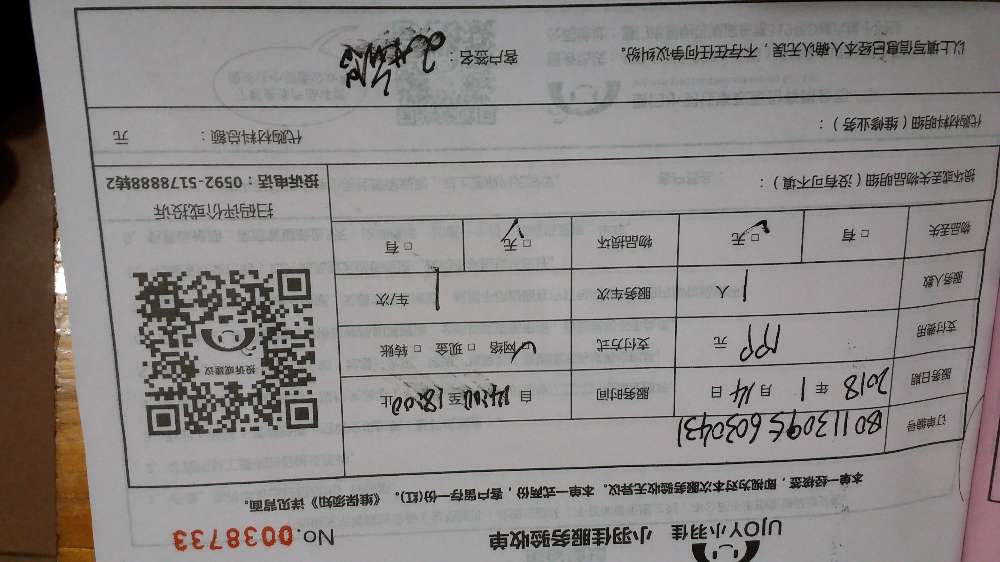 UJOY小羽佳 小羽佳服务验收单 No.0038733
本单一经核签，即视为对本次服务验收无异议。本单一式两份，客户留存一份(红)。《维保须知》详见背面。
订单编号 801130956030431
服务日期 2018 年 1 月 14 日 服务时间 自 14:00 至 18:00 止
支付费用 元 支付方式 □网络 □现金 □转账
服务人数 1 人 服务车次 1 车/次
物品丢失 □有 □无 物品损坏 □无 □有
损坏或丢失物品明细（没有可不填）：
扫码评价或投诉
投诉电话：0592-5178888转2
投诉或建议
代购材料明细（维修业务）： 代购材料总额： 元
以上填写信息已经本人确认无误，不存在任何争议纠纷。 客户签名：